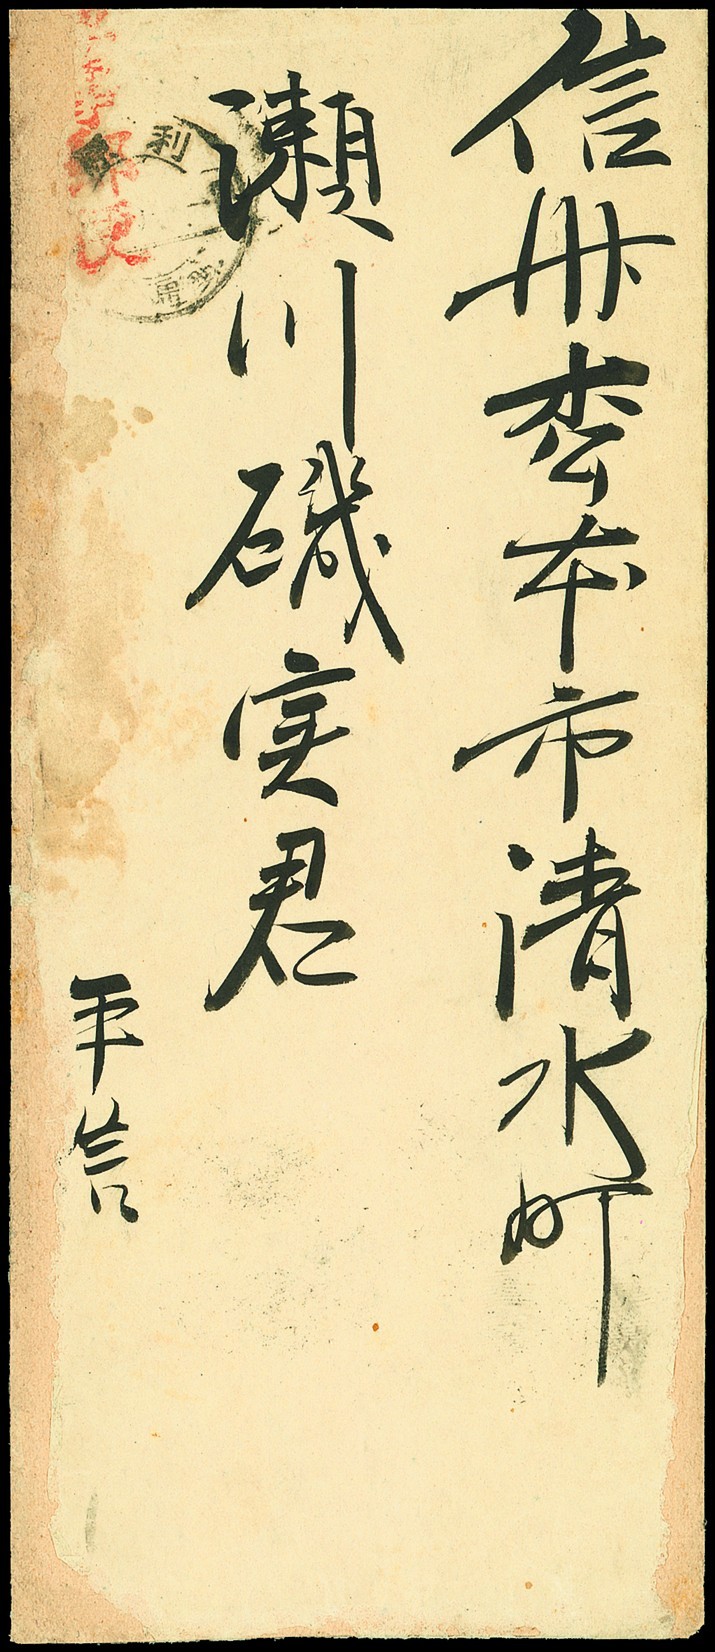 信州松本市清水町
瀬川磯実君
平信
郵便
利